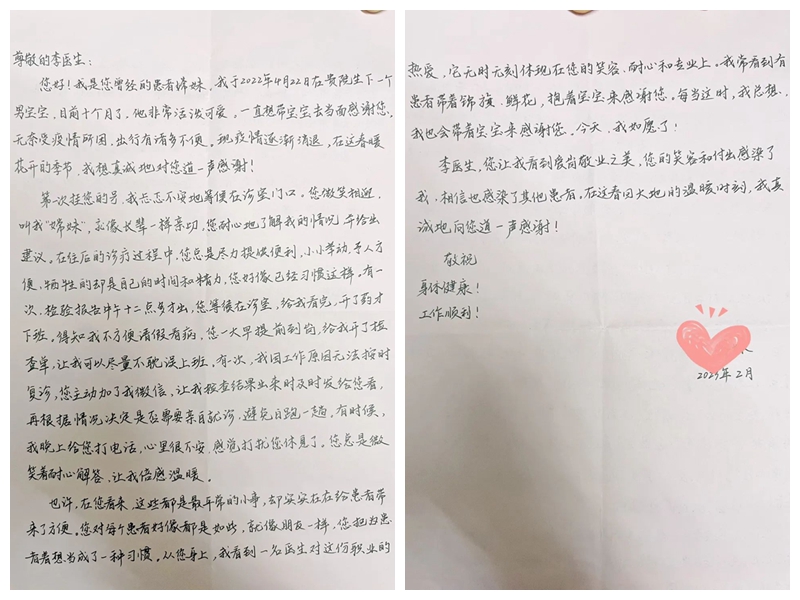 尊敬的李医生：
您好！我是您曾经的患者嫦妹，我于2022年4月22日在贵院生下一个
男宝宝，目前十个月了，他非常活泼可爱，一直想带宝宝去当面感谢您。
无奈受疫情所困，出行有诸多不便。现疫情逐渐消退，在这春暖
花开的季节，我想真诚地对您道一声感谢！
第一次挂您的号，我忐忑不安地等候在诊室门口。您微笑相迎，
叫我“嫦妹”，就像长辈一样亲切，您耐心地了解我的情况，并给出
建议。在往后的诊疗过程中，您总是尽力提供便利，小小举动，予人方
便，牺牲的却是自己的时间和精力，您好像已经习惯这样。有一
次，检验报告中午十二点多才出，您等候在诊室，给我看完，开了药才
下班。得知我不方便请假看病，您一大早提前到岗，给我开了检
查单，让我可以尽量不耽误上班。有一次，我因工作原因无法按时
复诊，您主动加了我微信，让我检查结果出来时及时发给您看，
再根据情况决定是否需要亲自就诊，避免白跑一趟。有时候，
我晚上给您打电话，心里很不安，感觉打扰您休息了。您总是微
笑着耐心解答，让我倍感温暖。
也许，在您看来，这些都是最平常的小事，却实实在在给患者带
来了方便。您对每个患者好像都是如此，就像朋友一样，您把为患
者着想当成了一种习惯。从您身上，我看到一名医生对这份职业的
热爱，它无时无刻体现在您的笑容、耐心和专业上。我常看到有
患者带着锦旗、鲜花，抱着宝宝来感谢您。每当这时，我总想，
我也会带着宝宝来感谢您。今天，我如愿了！
李医生，您让我看到爱岗敬业之美，您的笑容和付出感染了
我，相信也感染了其他患者，在这春回大地的温暖时刻，我真
诚地向您道一声感谢！
敬祝
身体健康！
工作顺利！
2023年2月